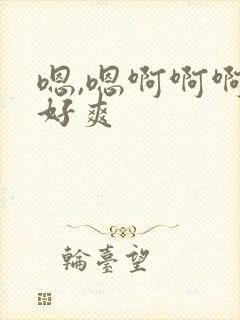 嗯,嗯啊啊啊
好爽
輪臺望